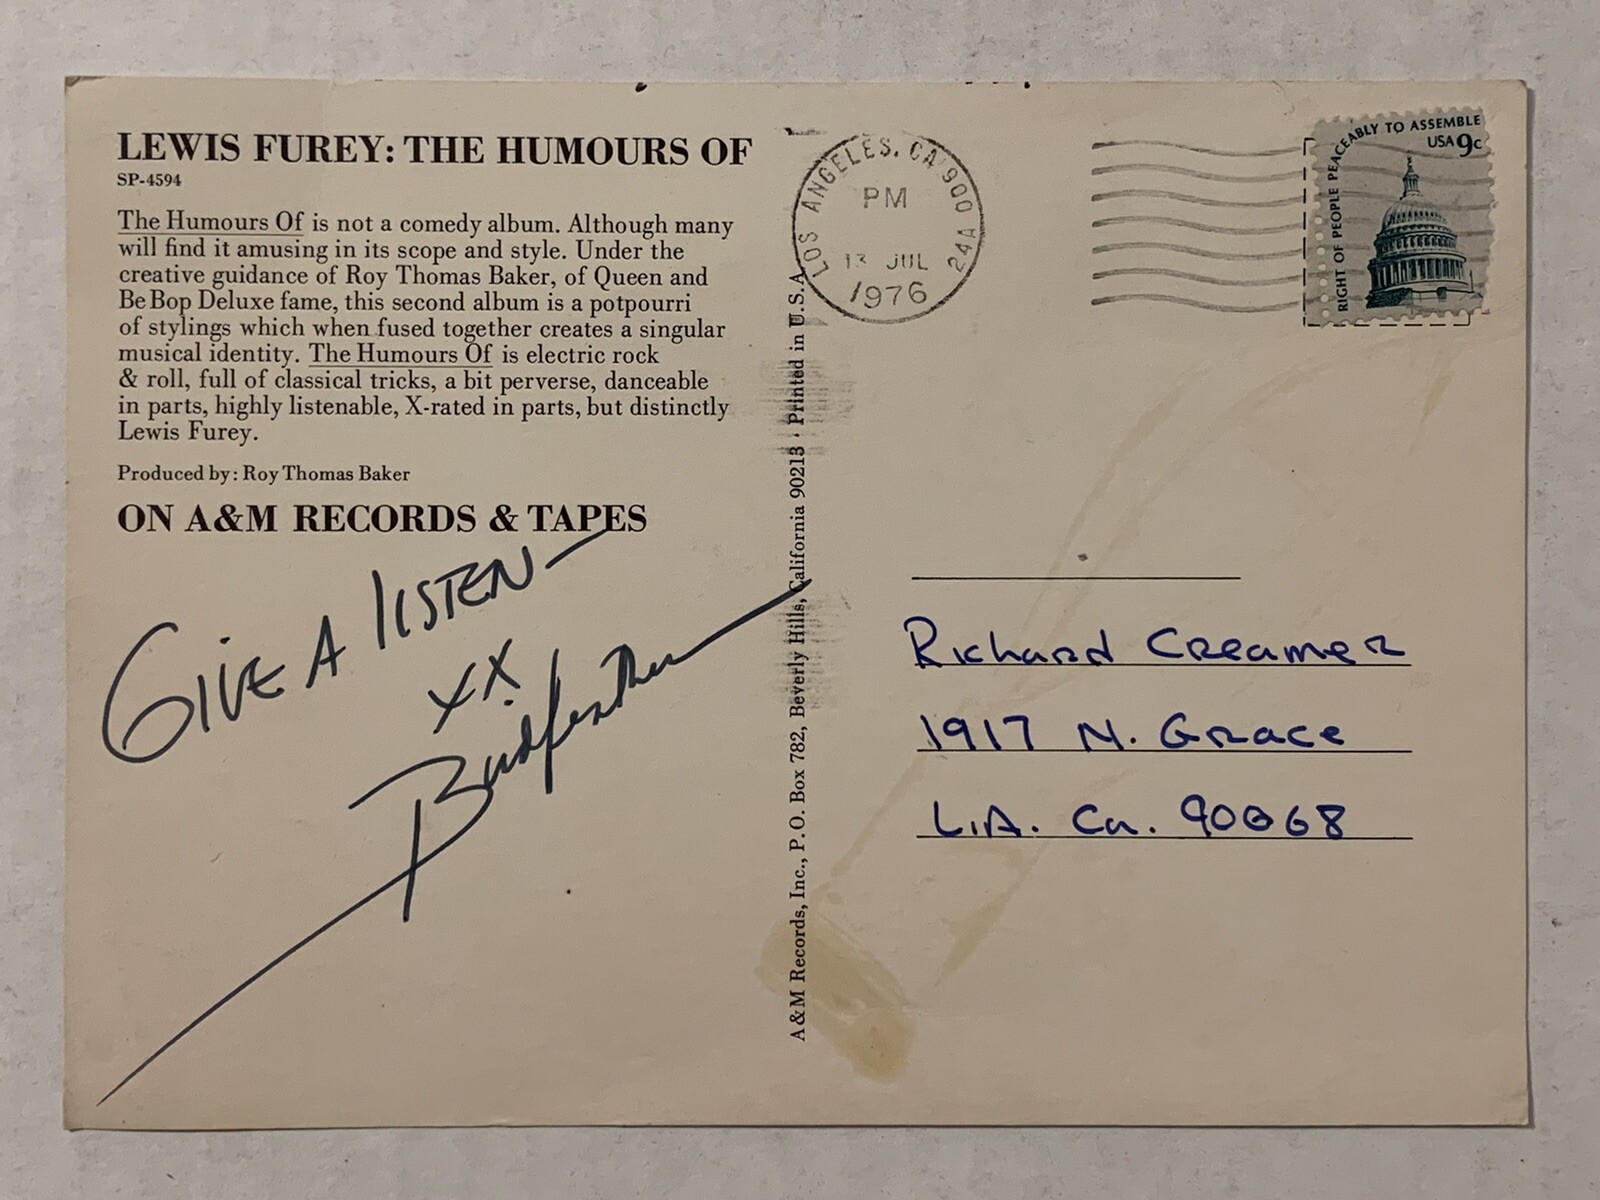 LEWIS FUREY: THE HUMOURS OF
SP-4594
The Humours Of is not a comedy album. Although many
will find it amusing in its scope and style. Under the
creative guidance of Roy Thomas Baker, of Queen and
Be Bop Deluxe fame, this second album is a potpourri
of stylings which when fused together creates a singular
musical identity. The Humours Of is electric rock
& roll, full of classical tricks, a bit perverse, danceable
in parts, highly listenable, X-rated in parts, but distinctly
Lewis Furey.
Produced by: Roy Thomas Baker
ON A&M RECORDS & TAPES
GIVE A LISTEN—
XX
A&M Records, Inc., P.O. Box 782, Beverly Hills, California 90213 · Printed in U.S.A.
LOS ANGELES, CA 900
PM
13 JUL
24A
1976
RIGHT OF PEOPLE PEACEABLY TO ASSEMBLE
USA 9c
Richard Creamer
1917 N. Grace
L.A. Ca. 90068